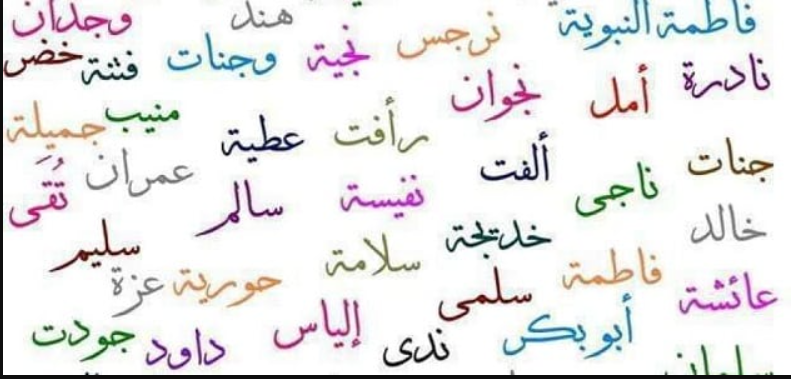 فاطمة النبوية هند وجدان
نرجس نجية وجنات فتنة خضر
نادرة أمل نجوان
منيب جميلة
رأفت عطية
جنات ألفت عمران تُقَى
ناجى نفيسة سالم
خالد خديجة سلامة سليم
عائشة فاطمة سلمى حورية عزة
أبو بكر ندى إلياس داود جودت
سلمان